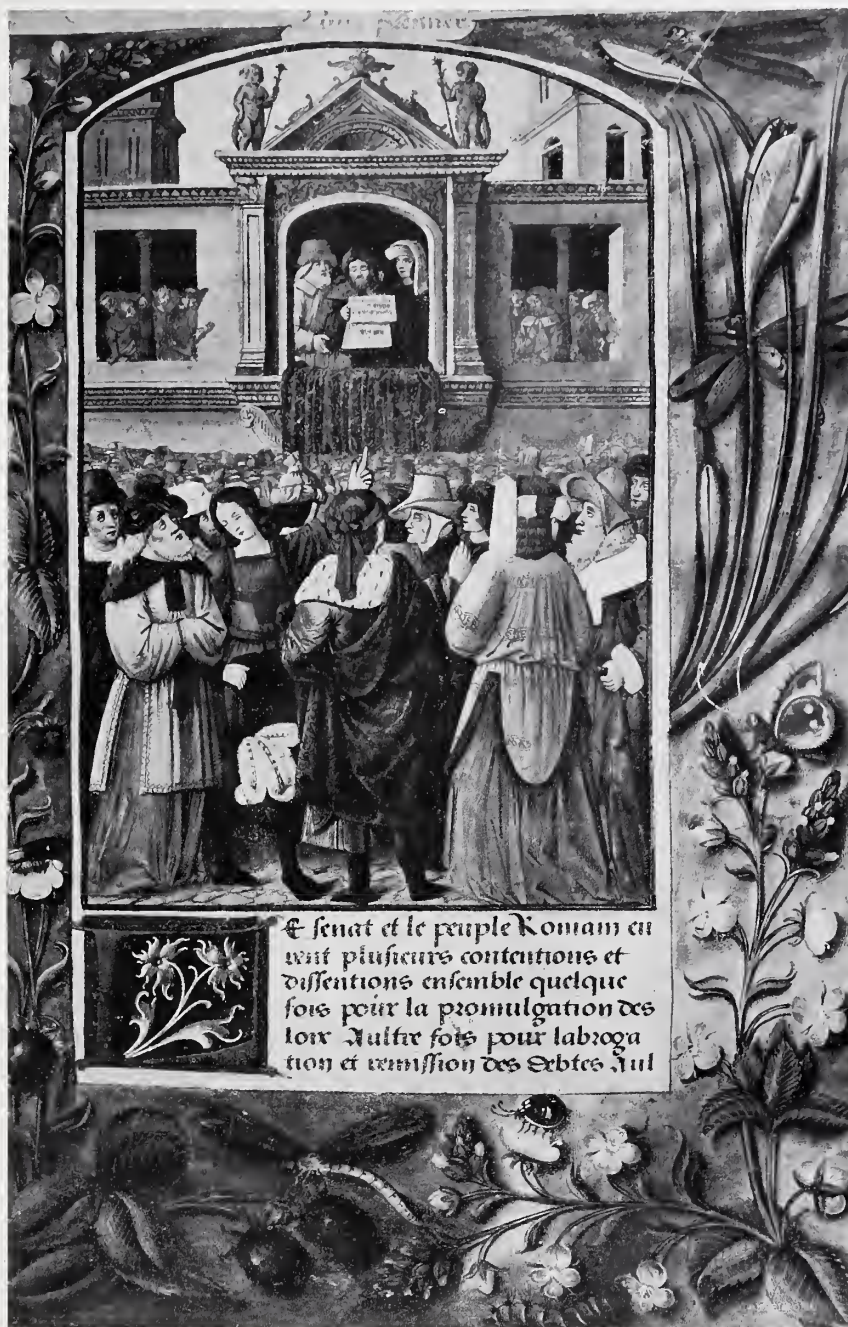 premier
E senat et le peuple Romain eu
rent plusieurs contentions et
dissentions ensemble quelque
fois pour la promulgation des
loix Aultre fois pour labroga
tion et remission des debtes Aul